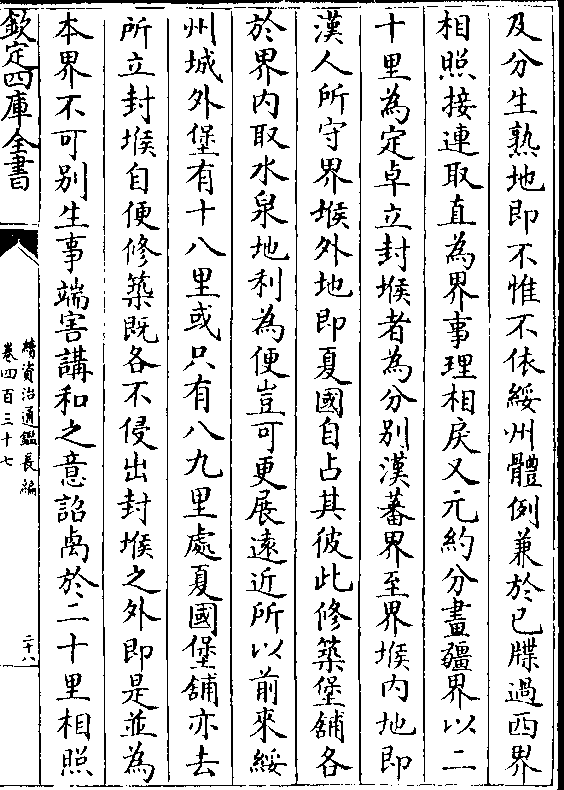 及分生熟地即不惟不依綏州體例兼於已牒過西界
相照接連取直為界事理相戾又元約分畫疆界以二
十里為定卓立封堠者為分別漢蕃界至界堠内地即
漢人所守界堠外地即夏國自占其彼此修築堡鋪各
於界内取水泉地利為便豈可更展遠近所以前來綏
州城外堡有十八里或只有八九里處夏國堡鋪亦去
所立封堠自便修築既各不侵出封堠之外即是並為
本界不可别生事端害講和之意詔卨於二十里相照
欽定四庫全書
續資治通鑑長編
卷四百三十七
二十八